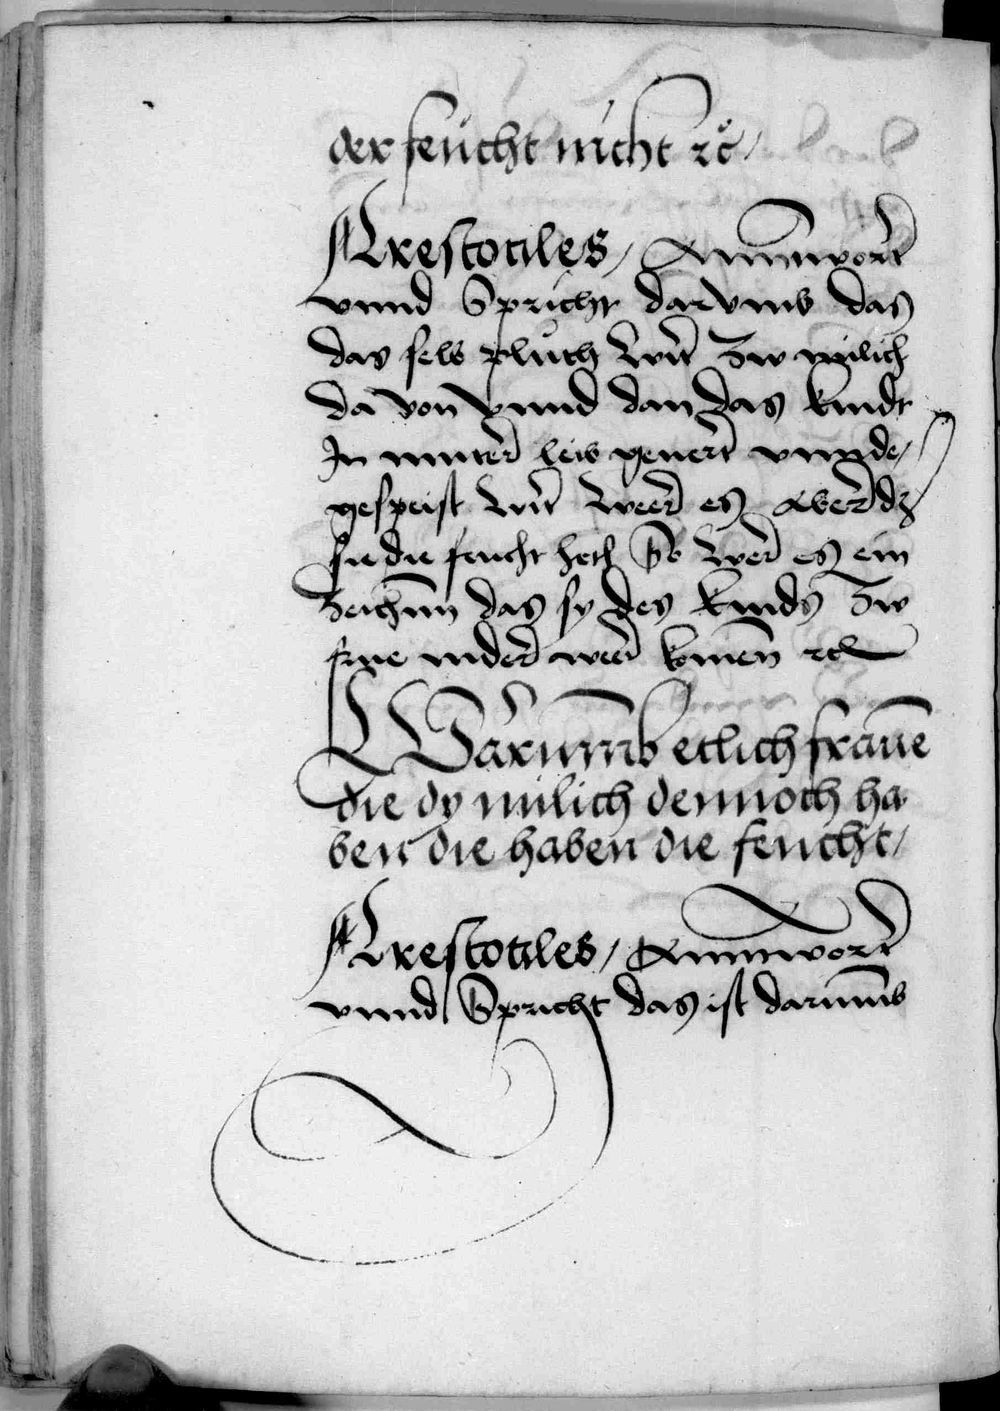 der feücht nicht ꝛcͦ /
Arestotiles / Anntwort
vnnd Spricht darvmb das
das selb pluͦth wirt zw milich
da von vnnd dan das kindt
In mutter leib genert vnnde /
gespeist wirt weer es aber dz
sie die feucht het so wer es ein
zeichnn das sy des kinds zw
frue nider weer komen ꝛc
Warumb etlich frauen
die dy milich dennoch ha
ben die haben die feucht /
Arestotiles / Anntwort
vnnd Spricht das ist darumb